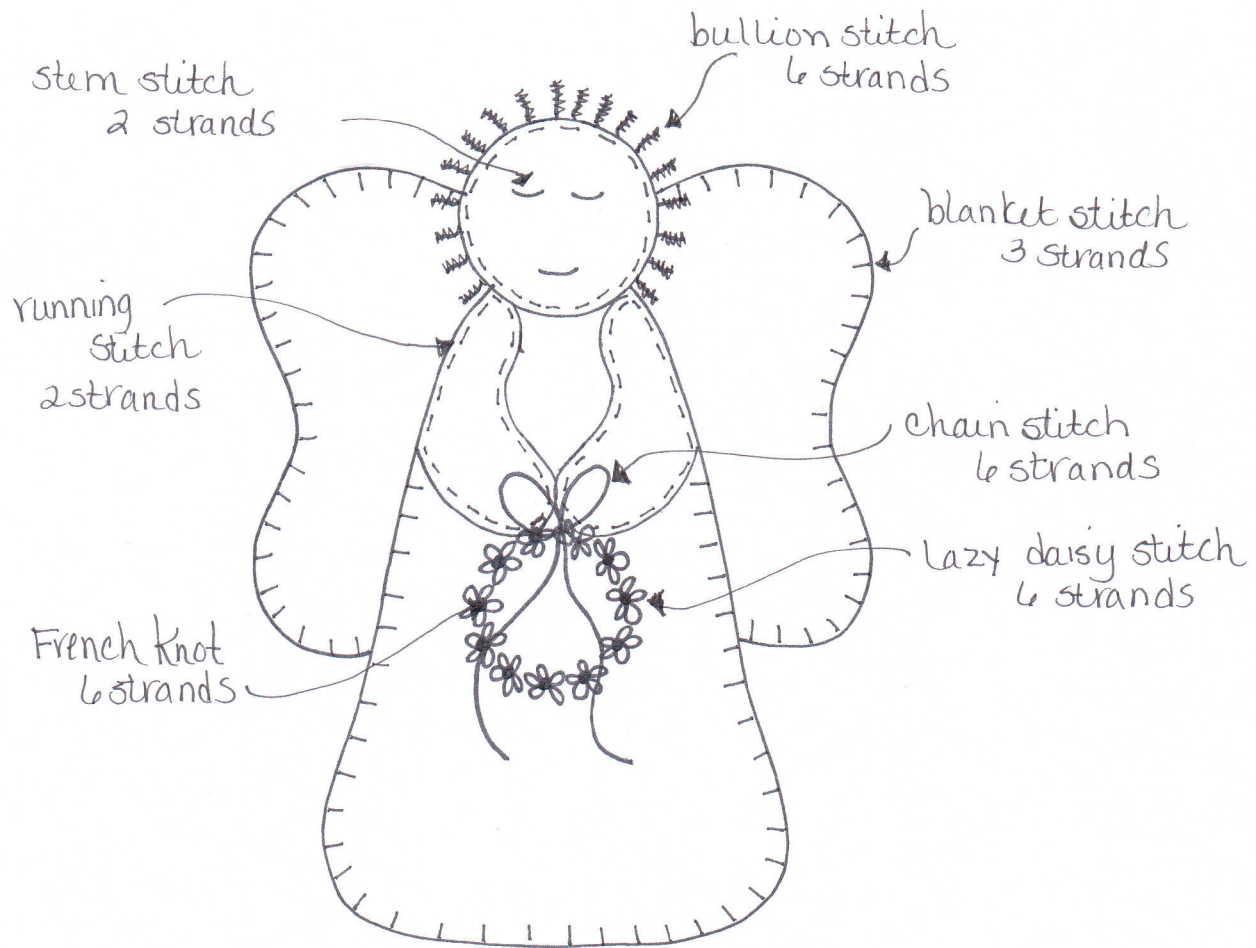 bullion stitch
6 strands
stem stitch
2 strands
blanket stitch
3 strands
running
stitch
2 strands
chain stitch
6 strands
lazy daisy stitch
6 strands
French Knot
6 strands